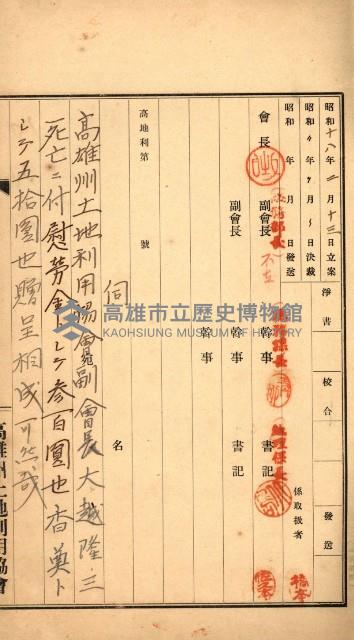 昭和十八年二月十三日立案
昭和 年 月 日決裁
昭和 年 月 日發送
淨書
校合
發送
會長
副會長
副會長
幹事
幹事
幹事
書記
書記
係取扱者
不在
高地利第 號
伺
名
高雄州土地利用協會副會長大越隆三
死亡ニ付慰勞金トシテ參百圓也香奠ト
シテ五拾圓也贈呈相成可然哉
高雄州土地利用協會
高雄市立歷史博物館
KAOHSIUNG MUSEUM OF HISTORY